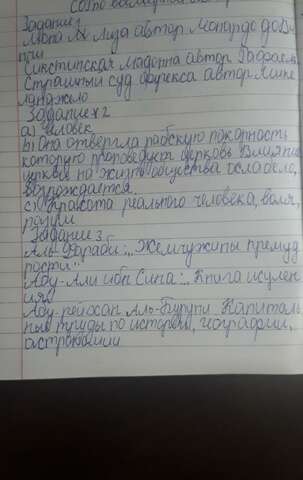 СОЧ по всемирной
Задание 1
Мона Лиза автор Леонардо до Ви
нчи
Сикстинская Мадонна автор Рафаэль
Страшный суд фреска автор Мике
ланджело
Задание 2
а) человек
b) Она отвергла рабскую покорность
которую проповедует церковь Влияние
церкви на жизнь общества ослабело,
возрождается.
с) Красота реального человека, воля,
разум
Задание 3
Аль-Фараби: „Жемчужины премуд
рости"
Абу-Али ибн Сина: „Книга исцелен
ия"
Абу-рейхан Аль-Бируни Капиталь
ные труды по истории, географии,
астрономии